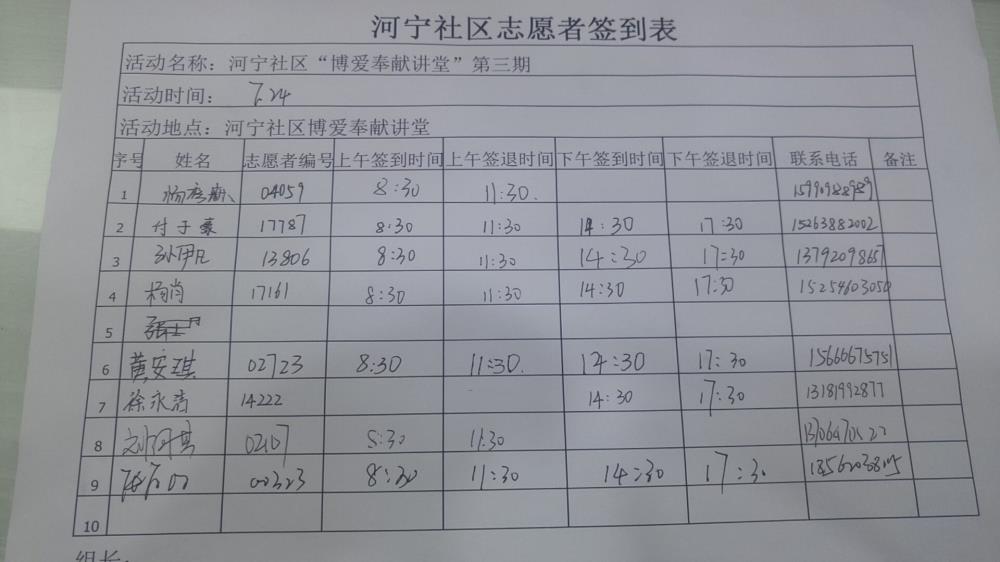 河宁社区志愿者签到表
活动名称：河宁社区“博爱奉献讲堂”第三期
活动时间： 7.24
活动地点：河宁社区博爱奉献讲堂
序号 姓名 志愿者编号 上午签到时间 上午签退时间 下午签到时间 下午签退时间 联系电话 备注
1 04059 8:30 11:30.
2 付子豪 17787 8:30 11:30 14:30 17:30 15263882002
3 孙伊凡 13806 8:30 11:30 14:30 17:30
4 杨尚 17161 8:30 11:30 14:30 17:30
5
6 黄安琪 02723 8:30 11:30. 14:30 17:30 15666675751
7 徐永浩 14222 14:30 17:30 13181992877
8 02107 8:30 11:30
9 00323 8:30 11:30 14:30 17:30
10
组长：